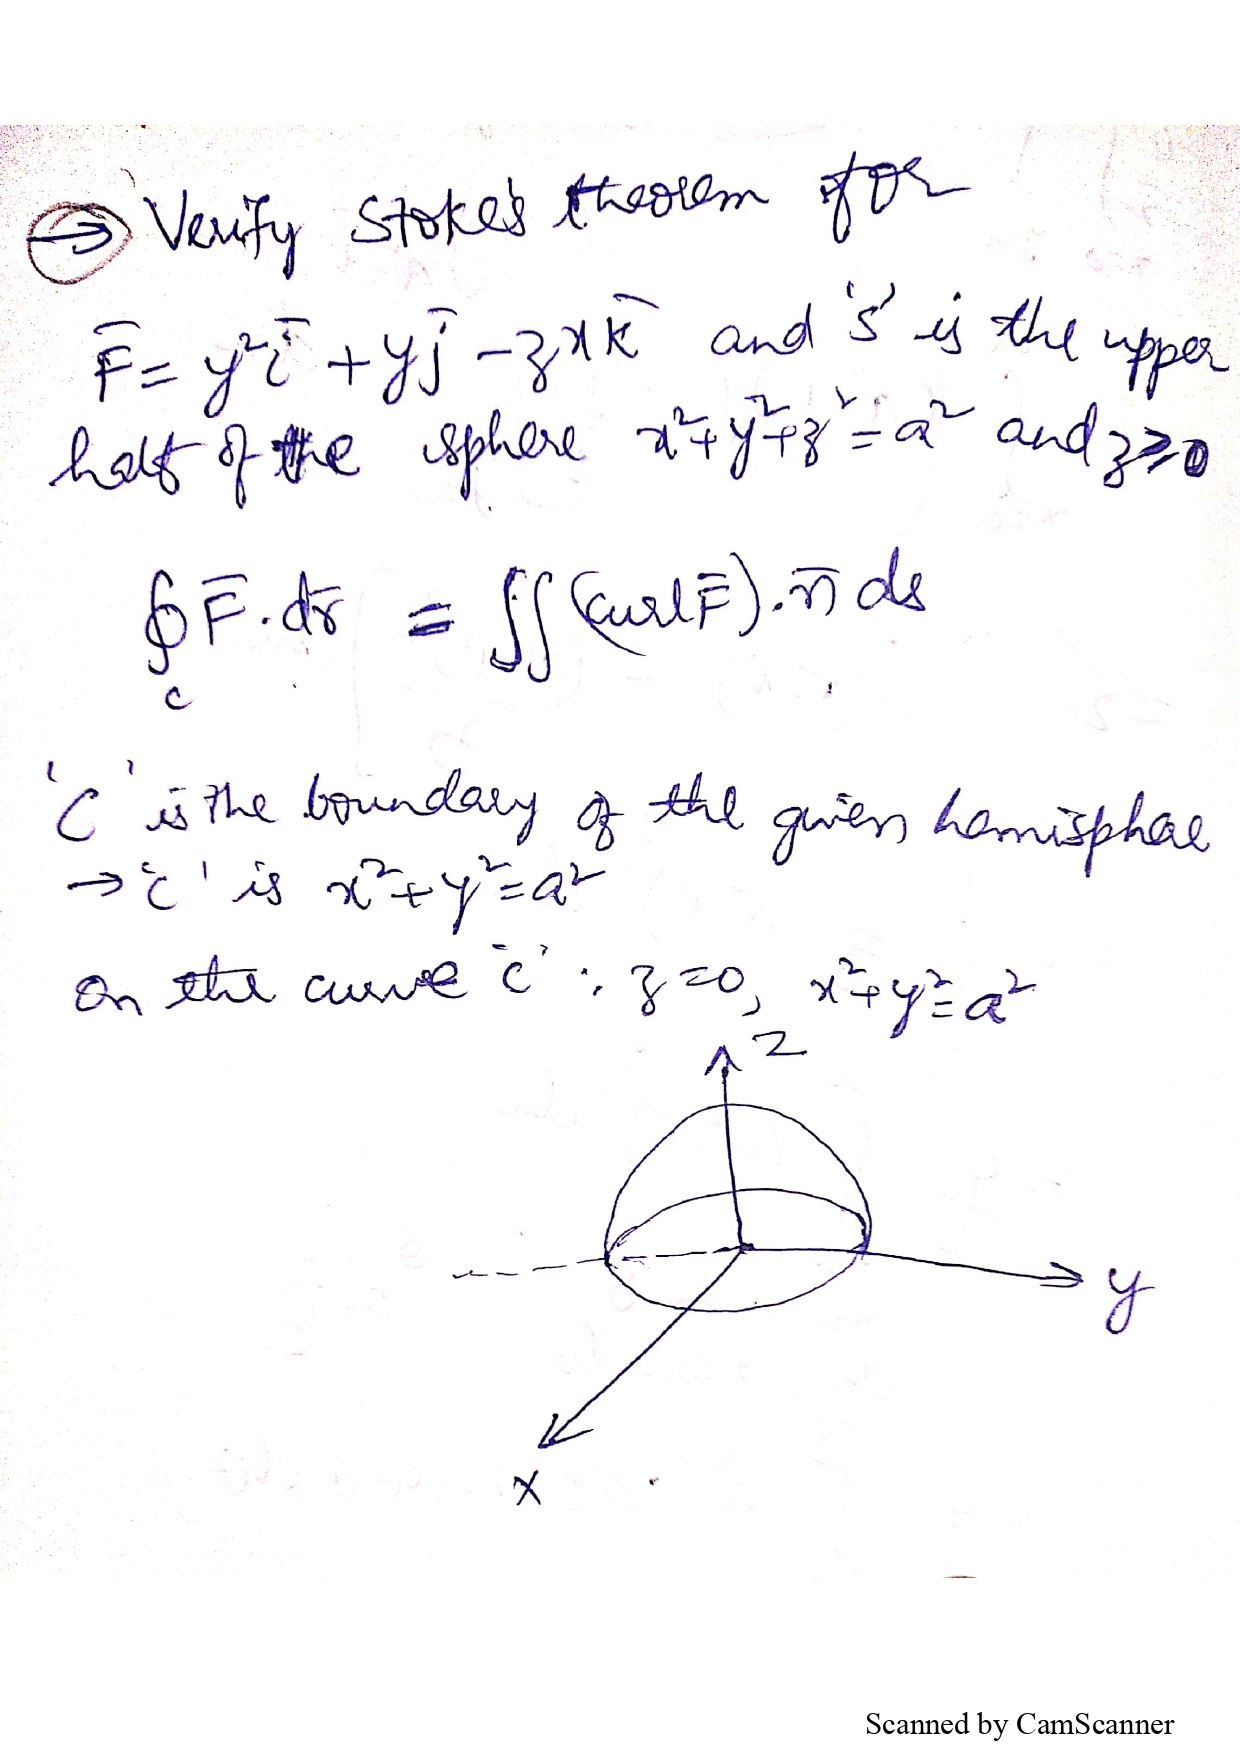 → Verify Stoke's theorem for
F̅ = y²i̅ + yj̅ - zxk̅ and 's' is the upper
half of the sphere x²+y²+z²=a² and z≥0
∮ F̅.dr̅ = ∬(curl F̅).n̅ ds
c
'C' is the boundary of the given hemisphere
→ 'c' is x²+y²=a²
on the curve 'c' : z=0, x²+y²=a²
z
y
x
Scanned by CamScanner